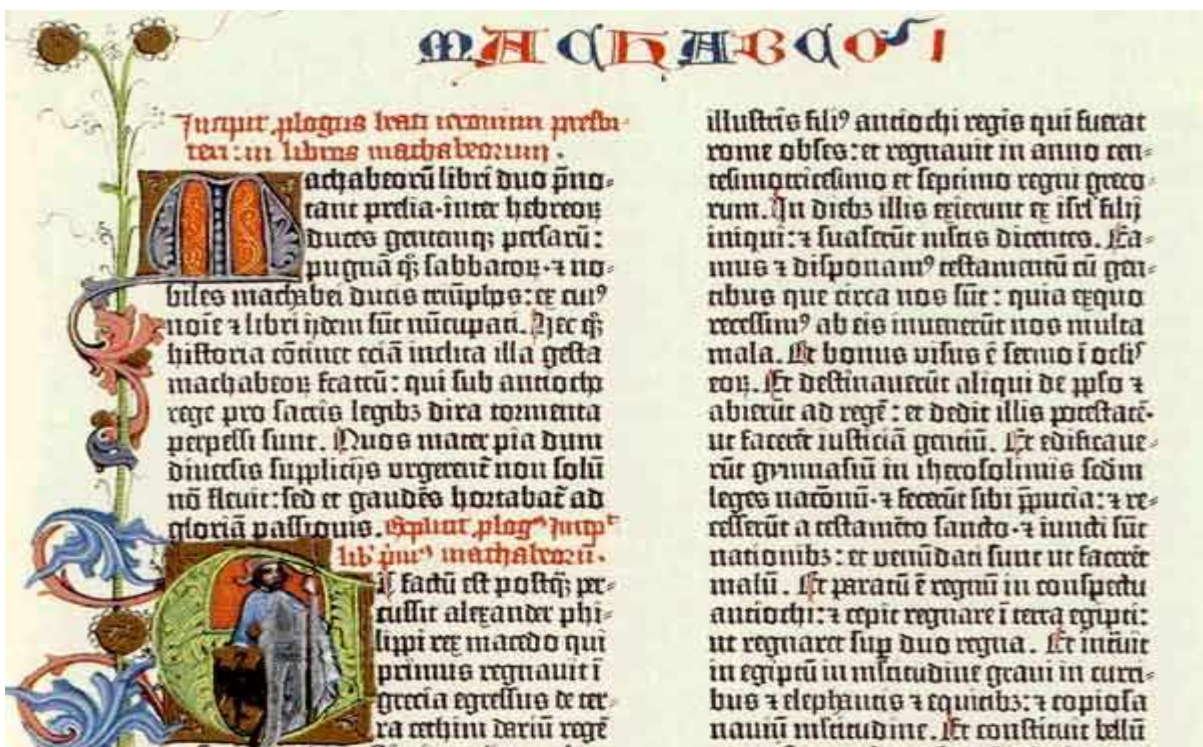 MACHABEO⁹ I
Incipit plogus beati ieronimi presbi-
teri: in libros machabeorum.
Machabeorū libri duo p̄no-
tant prelia·inter hebreoꝝ
duces gentemqꝫ persarū:
pugnā qꝫ sabbatoꝝ·⁊ no-
biles machabei ducis triūphos: ex cui⁹
noīe ⁊ libri ijdem sūt nūcupati. Hec qꝫ
historia cōtinet eciā inclita illa gesta
machabeoꝝ fratrū: qui sub antiocho
rege pro sacris legibꝫ dira tormenta
perpessi sunt. Quos mater pia dum
diversis supplicijs urgerent̄ non solū
nō flevit: sed et gaudēs hortabat̄ ad
gloriā passionis. Explicit plog⁹ Incipt̄
lib' prim⁹ machabeorū.
Et factū est postqꝫ per-
cussit alexander phi-
lippi rex macedo qui
primus regnavit ī
grecia egressus de ter-
ra cethim dariū regē
illustris fili⁹ antiochi regis qui fuerat
rome obses: et regnavit in anno cen-
tesimotricesimo et septimo regni greco-
rum. In diebꝫ illis exierunt ex isrl filij
iniqui: ⁊ suaserūt mltis dicentes. Ea-
mus ⁊ disponam⁹ testamentū cū gen-
tibus que circa nos sūt: quia exquo
recessim⁹ ab eis invenerūt nos multa
mala. Et bonus visus ē sermo ī oclis
eoꝝ. Et destinaverūt aliqui de pplo ⁊
abierūt ad regē: et dedit illis potestatē·
ut facerēt iusticiā gentiū. Et edificave-
rūt gymnasiū in iherosolimis scdm
leges nacōnū·⁊ fecerūt sibi p̄pucia: ⁊ re-
cesserūt a testamēto sancto·⁊ iuncti sūt
nationibꝫ: et venūdati sunt ut facerēt
malū. Et paratū ē regnū in conspectu
antiochi: ⁊ cepit regnare ī terra egipti:
ut regnaret sup duo regna. Et intūit
in egiptū in mltitudine gravi in curri-
bus ⁊ elephantis ⁊ equitibꝫ: ⁊ copiosa
naviū mltitudine. Et constituit bellū